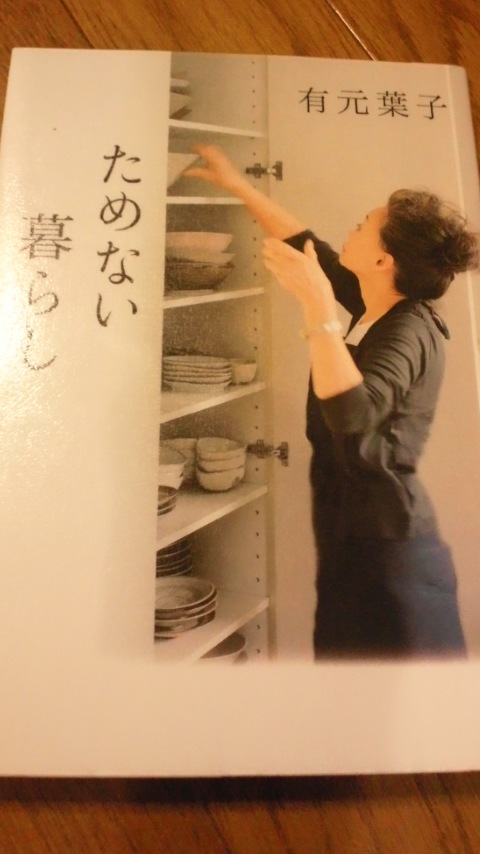 有元葉子
ためない
暮らし